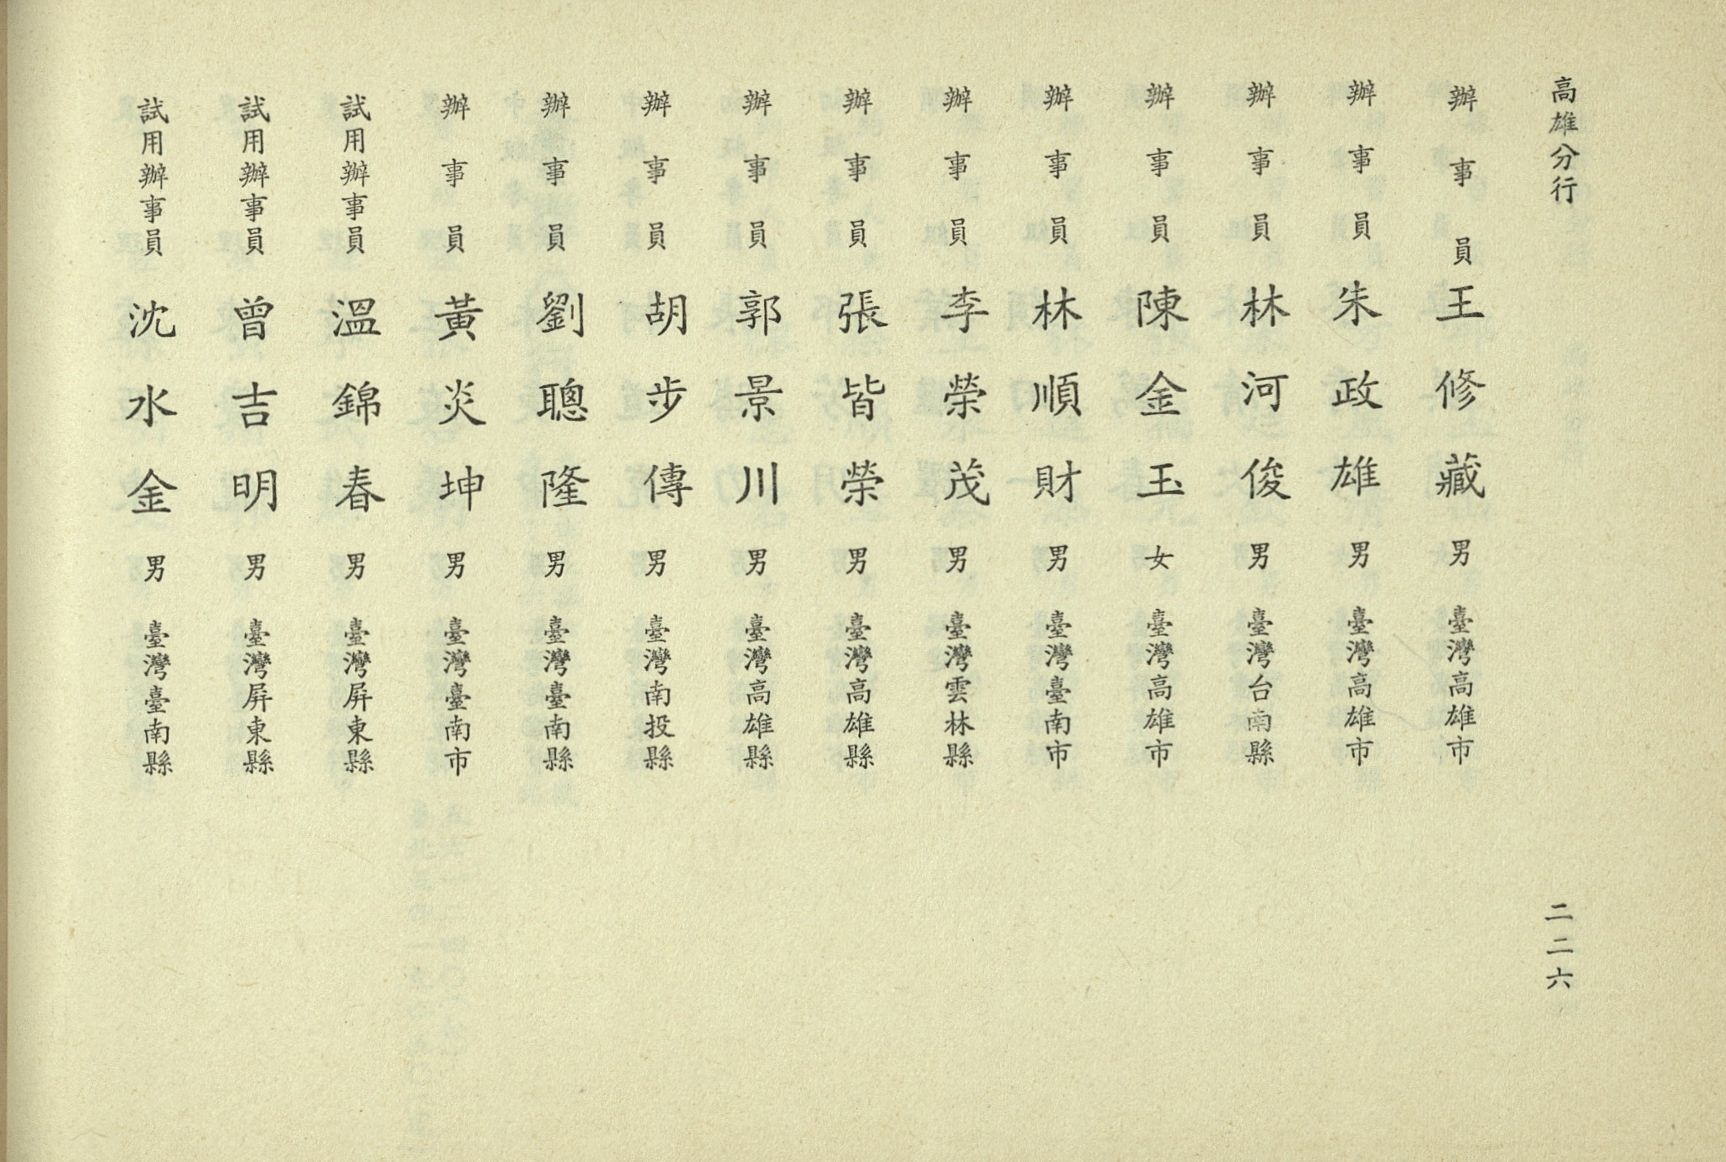 高雄分行
二二六
辦事員王修藏男臺灣高雄市
辦事員朱政雄男臺灣高雄市
辦事員林河俊男臺灣台南縣
辦事員陳金玉女臺灣高雄市
辦事員林順財男臺灣臺南市
辦事員李榮茂男臺灣雲林縣
辦事員張皆榮男臺灣高雄縣
辦事員郭景川男臺灣高雄縣
辦事員胡步傳男臺灣南投縣
辦事員劉聰隆男臺灣臺南縣
辦事員黃炎坤男臺灣臺南市
試用辦事員溫錦春男臺灣屏東縣
試用辦事員曾吉明男臺灣屏東縣
試用辦事員沈水金男臺灣臺南縣